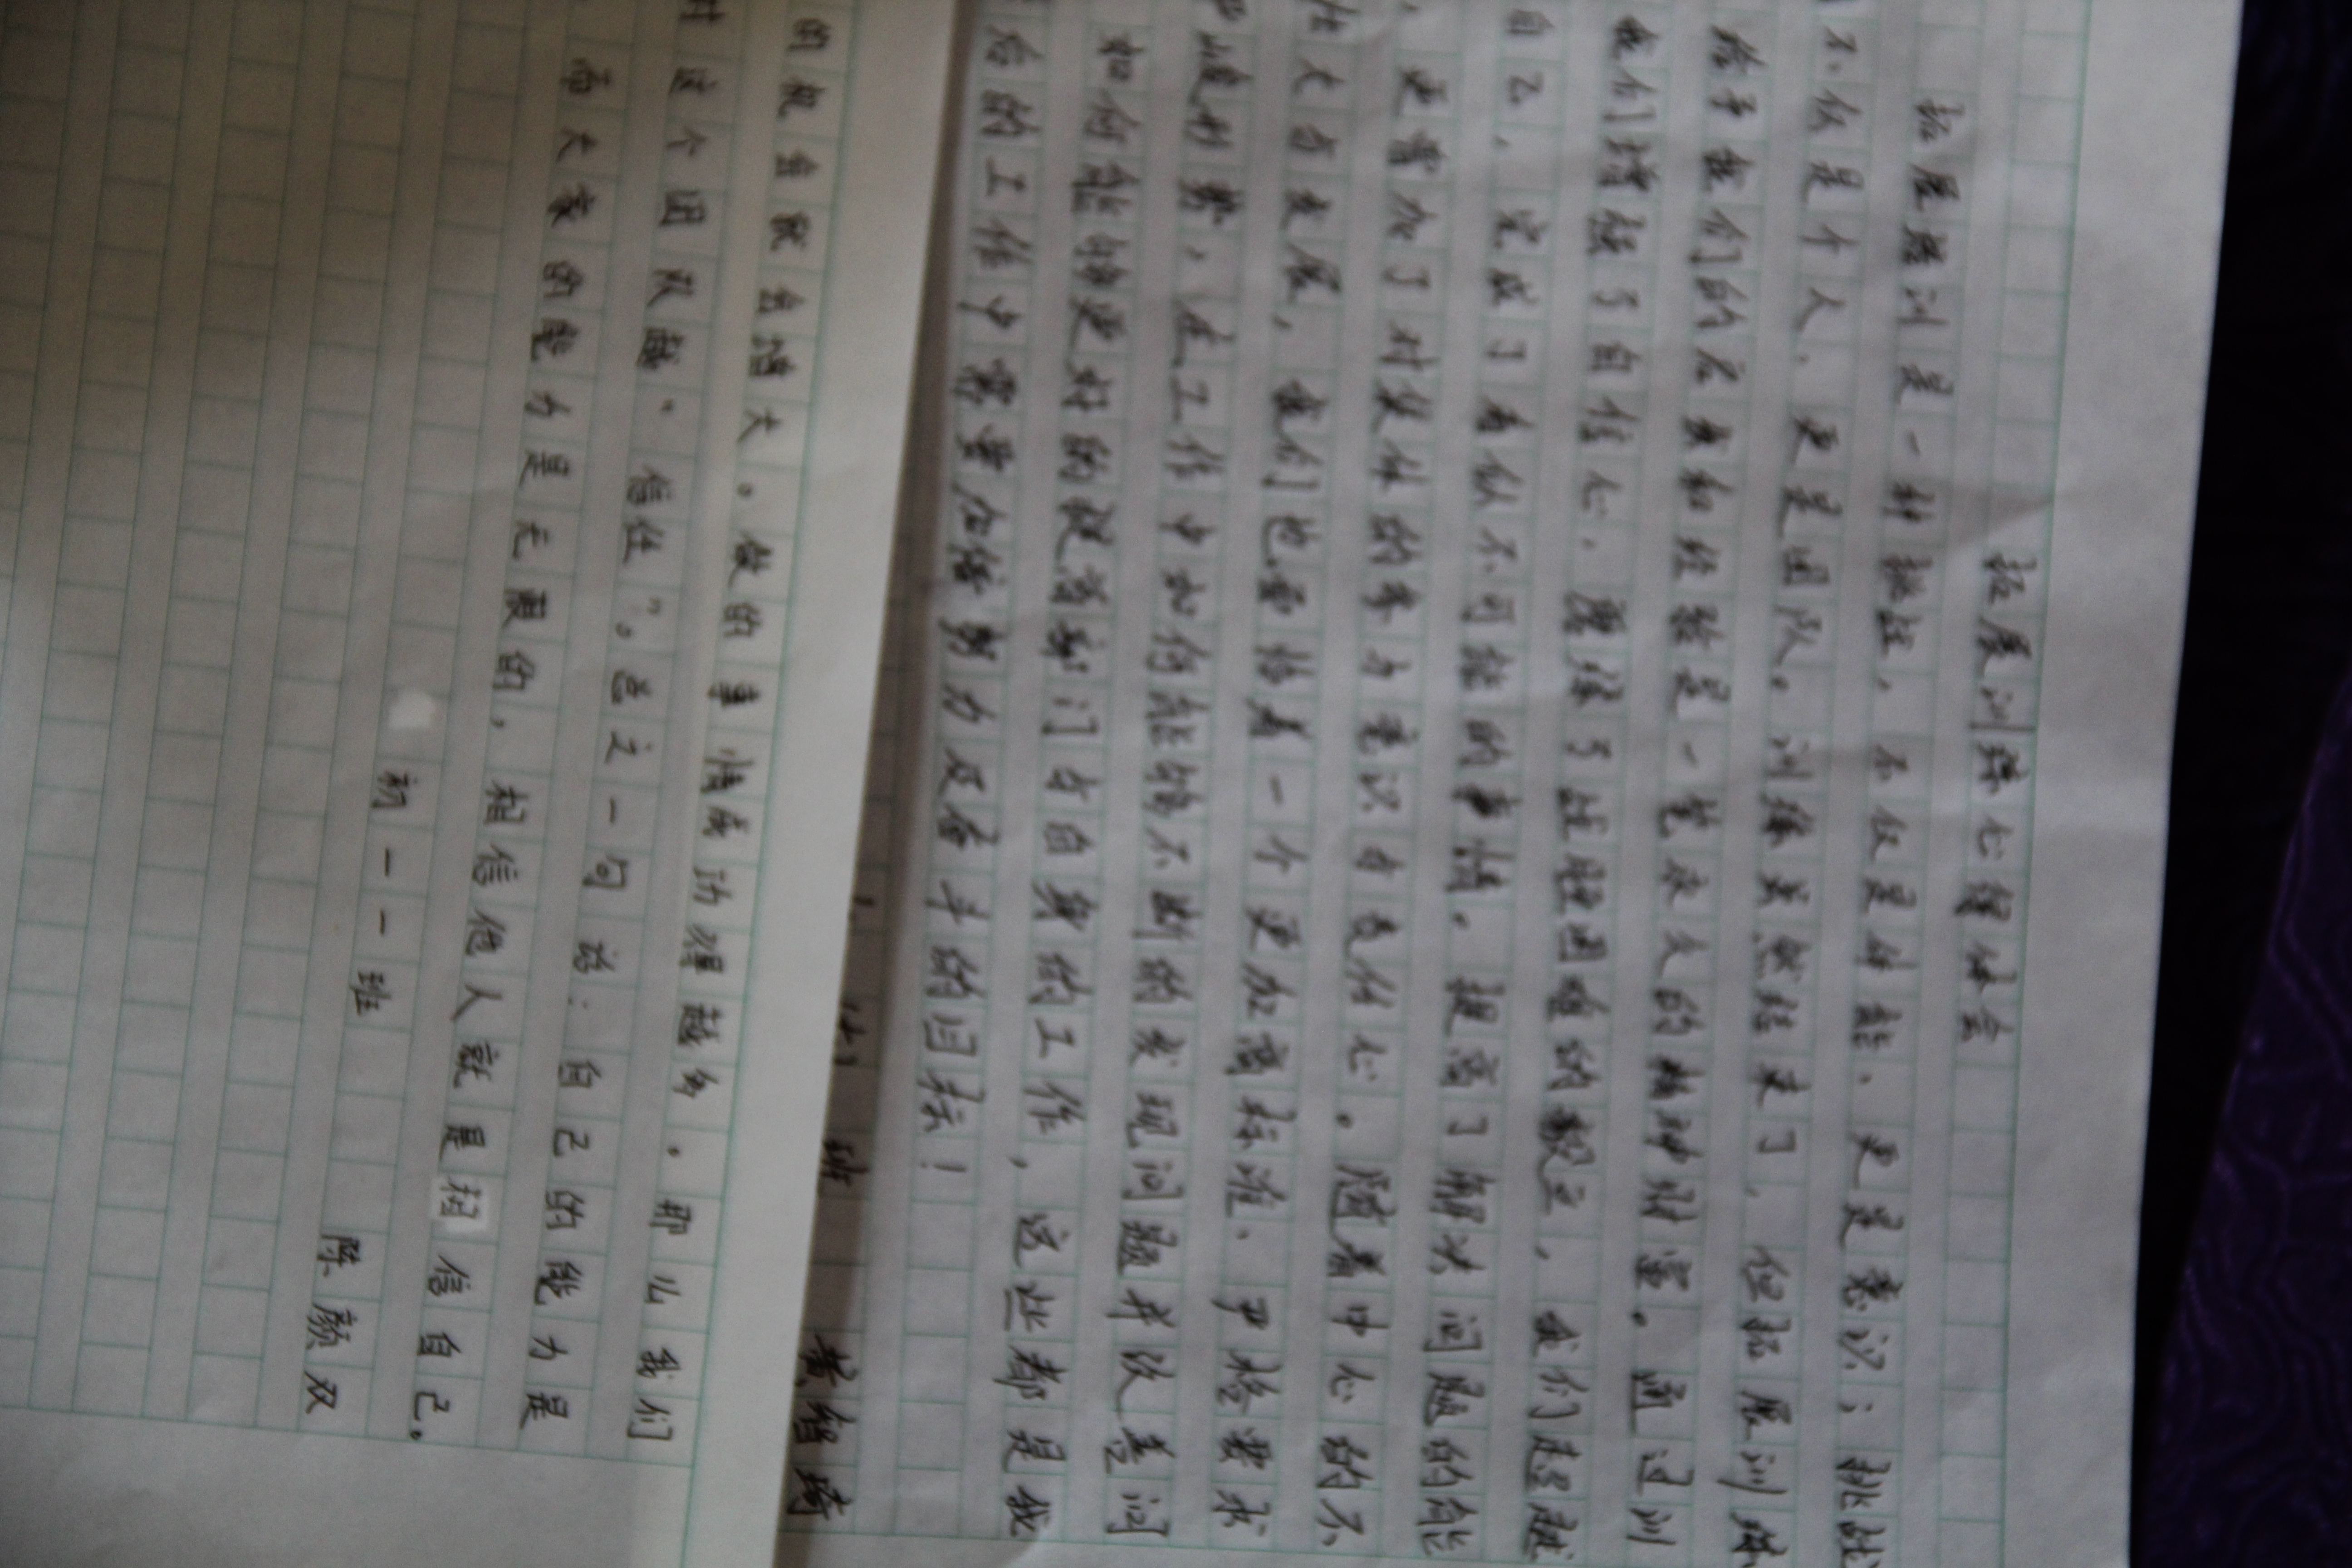 拓展训练心得体会
拓展培训是一种挑战，不仅是体能，更是意识；挑战
不仅是个人，更是团队。训练虽然结束了，但拓展训练
给予我们的启我和经验是一笔永久的精神财富。通过训
我们增强了自信心，磨练了战胜困难的毅立，我们超越
自己，完成了看似不可能的事情。提高了解决问题的能
更增加了对集体的参与意识与责任心。随着中心的不
壮大与发展，我们也面临着一个更加高标准、严格要求
严峻形势，在工作中如何能够不断的发现问题并改善问
如何能够更好的部门与自身的工作，这些都是我
后的工作中需要加倍努力及奋斗的目标！
班 黄智琦
的机会就会增大。做的事情成功璟越多。那么我们
这个团队越“信任”。总之一句话：自己的能力是
而大家的能力是无限的，相信他人就是相信自己。
初一一班
陈颜双